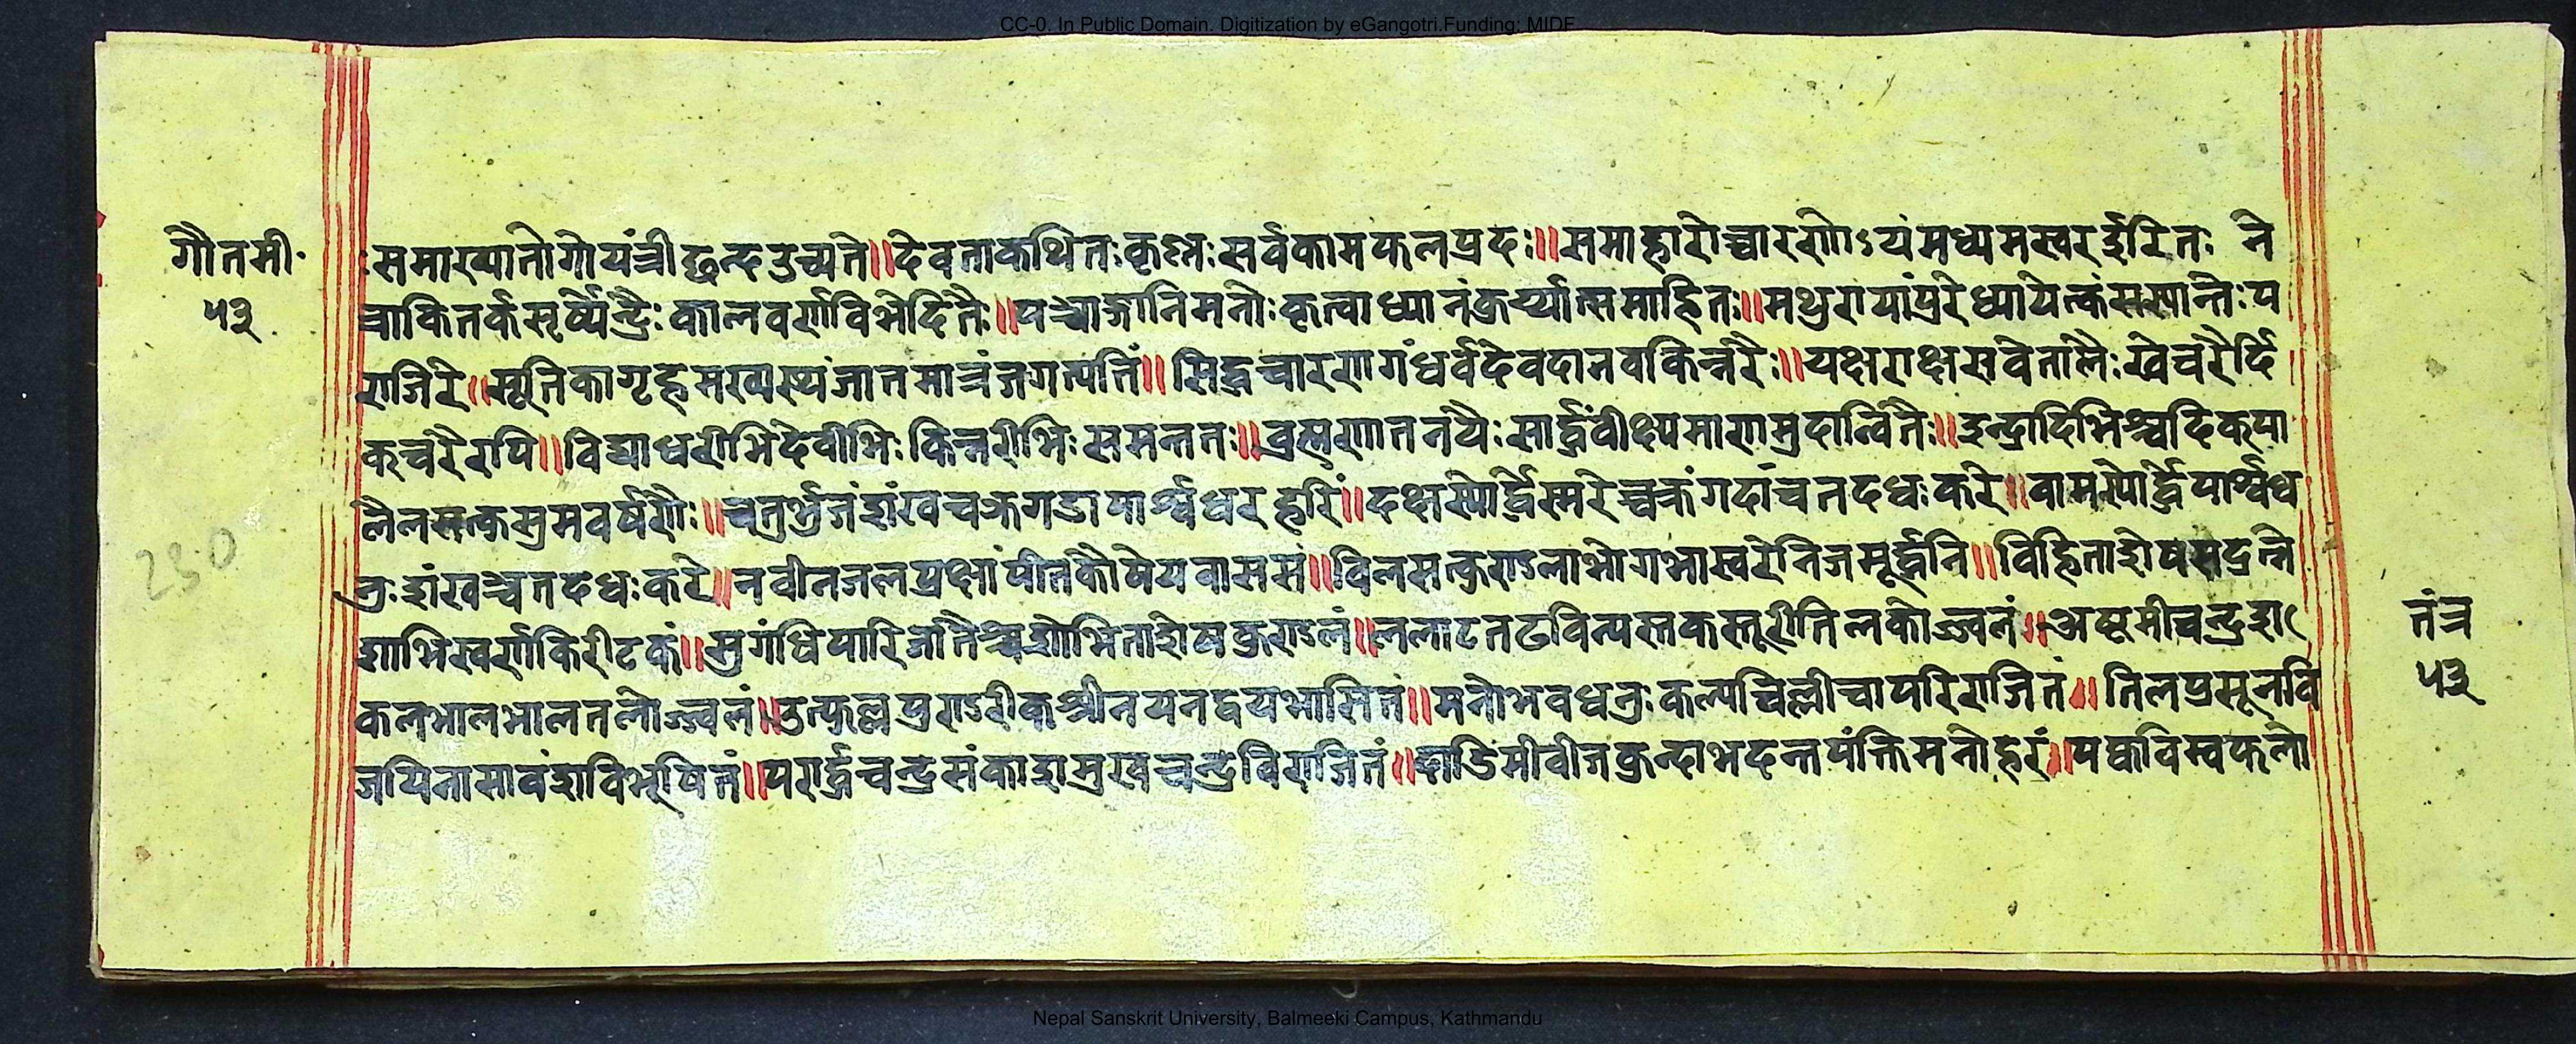 CC-0. In Public Domain. Digitization by eGangotri.Funding: MIDF
गौतमी॰
५३
समाख्यातो गोयत्री छन्द उच्यते॥ देवता कथितः कृष्णः सर्वकामफलप्रदः॥ समाहारोच्चारणोऽयं मध्यमस्वर ईरितः ने
कालवर्णविभेदितैः॥ पञ्चाङ्गानि मनोः कृत्वा ध्यानं कुर्य्यात्समाहितः॥ मथुरायां पुरे ध्यायेत्कंसस्यान्तःप
राजिरे॥ सूतिकागृहमस्यस्थं जातमात्रं जगत्पतिं॥ सिद्धचारणगंधर्वदेवदानवकिन्नरैः॥ यक्षराक्षसवेतालैः खेचरैर्दि
क्चरैरपि॥ विद्याधरीभिदेवीभिः किन्नरीभिः समन्ततः॥ ब्रह्मणातनयैः सार्द्धं वीक्ष्यमाणमुदान्वितैः॥ इन्द्रादिभिश्चदिक्पा
लैलसत्कुसुमवर्षणैः॥ चतुर्भुजं शंखचक्रगडापार्श्वधर हरिं॥ दक्षस्योर्द्धे स्मरेच्चक्रं गदां च तदधः करे॥ वामस्योर्द्धे पार्श्वध
नुः शंखञ्च तदधः करे॥ नवीनजलप्रक्षां पीतकौषेयवाससं॥ विलसत्कुण्डलाभोगभास्वरे निजमूर्द्धनि॥ विहिताशेषसद्रत्ने
शाभिस्वर्णकिरीटकं॥ सुगंधिपारिजातैश्च शोभिताशेषकुण्डलं॥ ललाटतटविन्यस्तकस्तूरीतिलकोज्ज्वलं॥ अष्टमीचन्द्रश
कलभालभालतलोज्ज्वलं॥ उत्फुल्लपुण्डरीकश्रीनयनद्वयभासितं॥ मनोभवधनुःकल्पचिल्लीचापरिराजितं॥ तिलप्रसूनवि
जयिनासावंशविभूषितं॥ परार्द्धचन्द्रसंकाशमुखचन्द्रविराजितं॥ दाडिमीवीजकुन्दाभदन्तपंक्तिमनोहरं॥ पक्वविम्वफलो
तंत्र
५३
Nepal Sanskrit University, Balmeeki Campus, Kathmandu